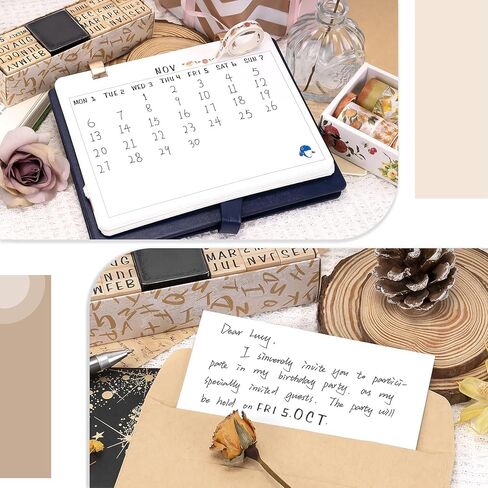 NOV
MON 1 TUE 2 WED 3 THU 4 FRI 5 SAT 6 SUN 7
1 2 3 4 5
6 7 8 9 10 11 12
13 14 15 16 17 18 19
20 21 22 23 24 25 26
27 28 29 30
MAR
JUL
Dear Lucy.
I sincerely invite you to partici-
pate in my birthday party. as my
specially invited guests. The party will
be hold on FRI 5.OCT.